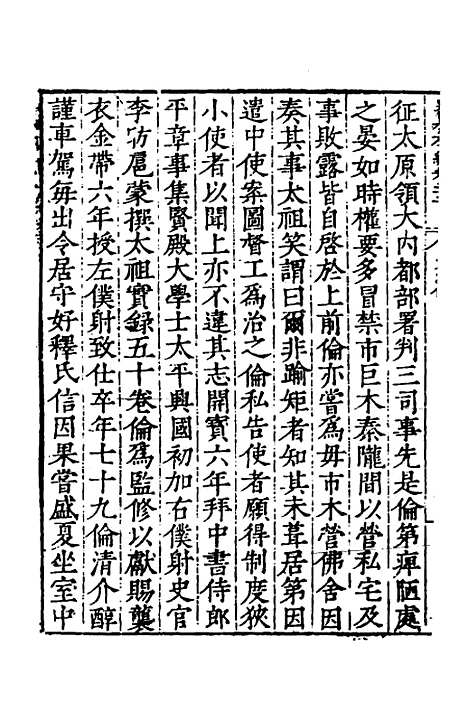 征太原領大内都部署判三司事先是倫第痺陋處
之晏如時權要多冒禁市巨木秦隴間以營私宅及
事敗露皆自啓於上前倫亦嘗爲毋市木營佛舍因
奏其事太祖笑謂曰爾非踰矩者知其未葺居第因
遣中使案圖督工爲治之倫私告使者願得制度狹
小使者以聞上亦不違其志開寶六年拜中書侍郎
平章事集賢殿大學士太平興國初加右僕射史官
李昉扈蒙撰太祖實録五十卷倫爲監修以獻賜襲
衣金帶六年授左僕射致仕卒年七十九倫清介醇
謹車駕毎出令居守好釋氏信因果嘗盛夏坐室中